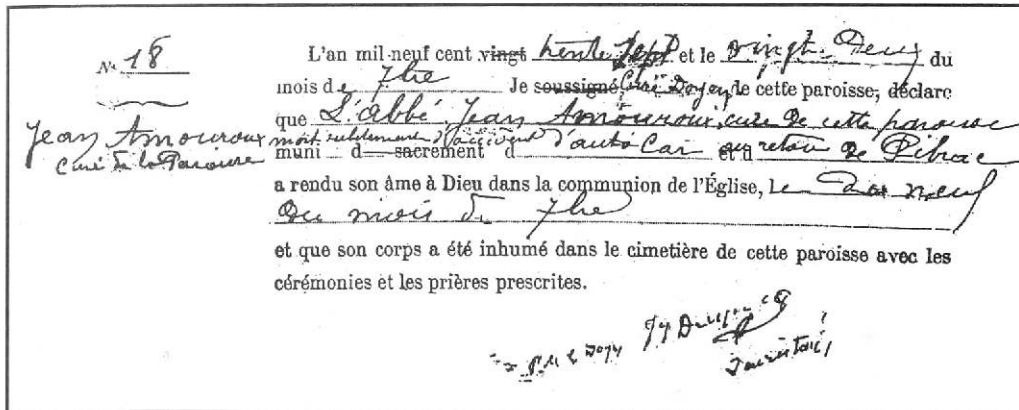 N° 18
Jean Amouroux
Curé de la Paroisse
L'an mil neuf cent vingt trente sept et le vingt-Deux du
mois de 7bre Je soussigné Curé Doyen de cette paroisse, déclare
que L'abbé Jean Amouroux, curé de cette paroisse
mort subitement d'accident d'auto Car au retour de Pibrac
muni d sacrement d et d
a rendu son âme à Dieu dans la communion de l'Église, Le dix neuf
Du mois de 7bre
et que son corps a été inhumé dans le cimetière de cette paroisse avec les
cérémonies et les prières prescrites.